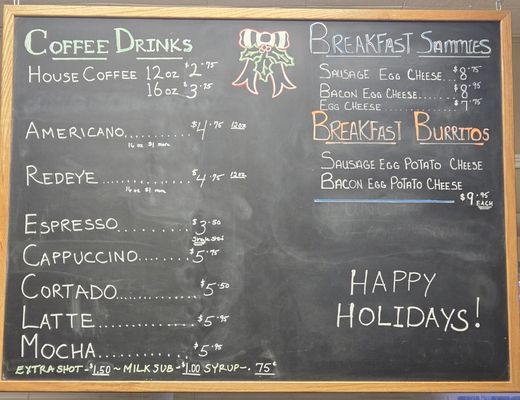 COFFEE DRINKS
HOUSE COFFEE 12oz $2.75
16oz $3.25
AMERICANO.......... $4.75 12oz
16 oz $1 more
REDEYE............. $4.75 12oz
16 oz $1 more
ESPRESSO........ $3.50
CAPPUCCINO....... $5.75
CORTADO............ $5.50
LATTE.............. $5.95
MOCHA............ $5.95
EXTRA SHOT-$1.50 ~ MILK SUB-$1.00 SYRUP-.75¢
BREAKFAST SAMMIES
SAUSAGE EGG CHEESE...$8.75
BACON EGG CHEESE......$8.95
EGG CHEESE............$7.75
BREAKFAST BURRITOS
SAUSAGE EGG POTATO CHEESE
BACON EGG POTATO CHEESE
$9.95
EACH
HAPPY
HOLIDAYS!